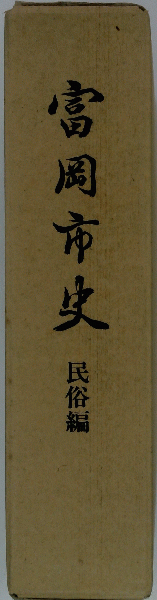 富岡市史
民俗編